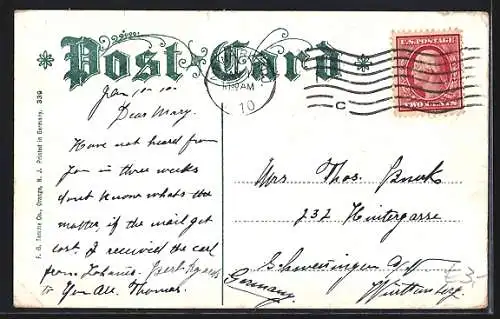 Post Card
U.S. POSTAGE
TWO CENTS
AM
10
C
Jan 10 10.
Dear Mary.
Have not heard from
You in three weeks
dont know whats the
matter, if the mail get
lost. I received the card
from
to You All. Thomas.
Mrs Thos.
232 Hintergasse
Schwenningen a/N
Württemberg.
Germany.
F. G. Temme Co., Orange, N. J. Printed in Germany. 339